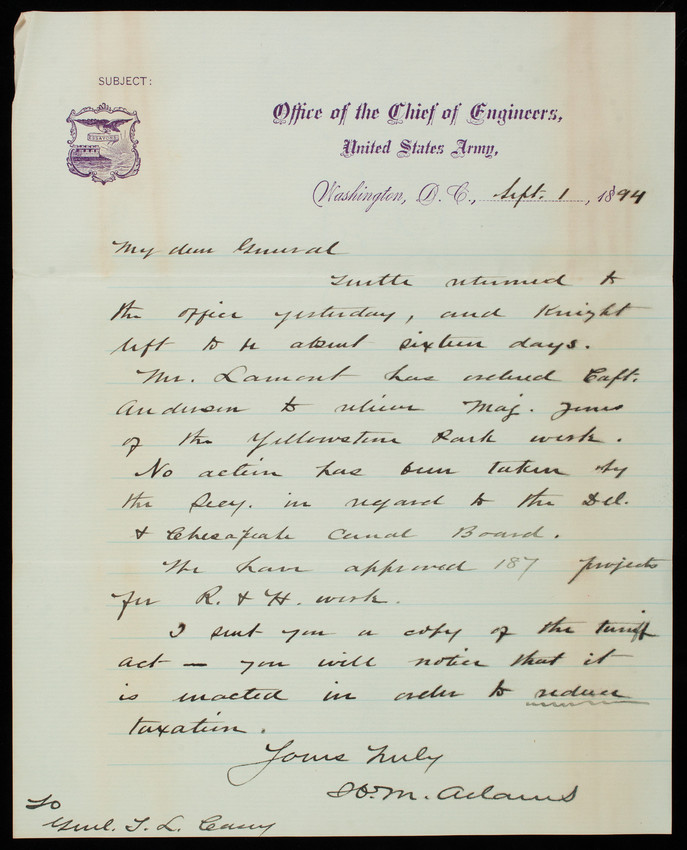 SUBJECT:
ESSAYONS
Office of the Chief of Engineers,
United States Army,
Washington, D. C., Sept. 1, 1894
My dear General
Turtle returned to
the office yesterday, and Knight
left to be absent sixteen days.
Mr. Lamont has ordered Capt.
Anderson to relieve Maj. Jones
of the Yellowstone Park work.
No action has been taken by
the Secy. in regard to the Del.
& Chesapeake Canal Board.
We have approved 187 projects
for R. & H. work.
I sent you a copy of the tariff
act — you will notice that it
is enacted in order to reduce
taxation.
Yours truly
H. M. Adams
To
Genl. T. L. Casey